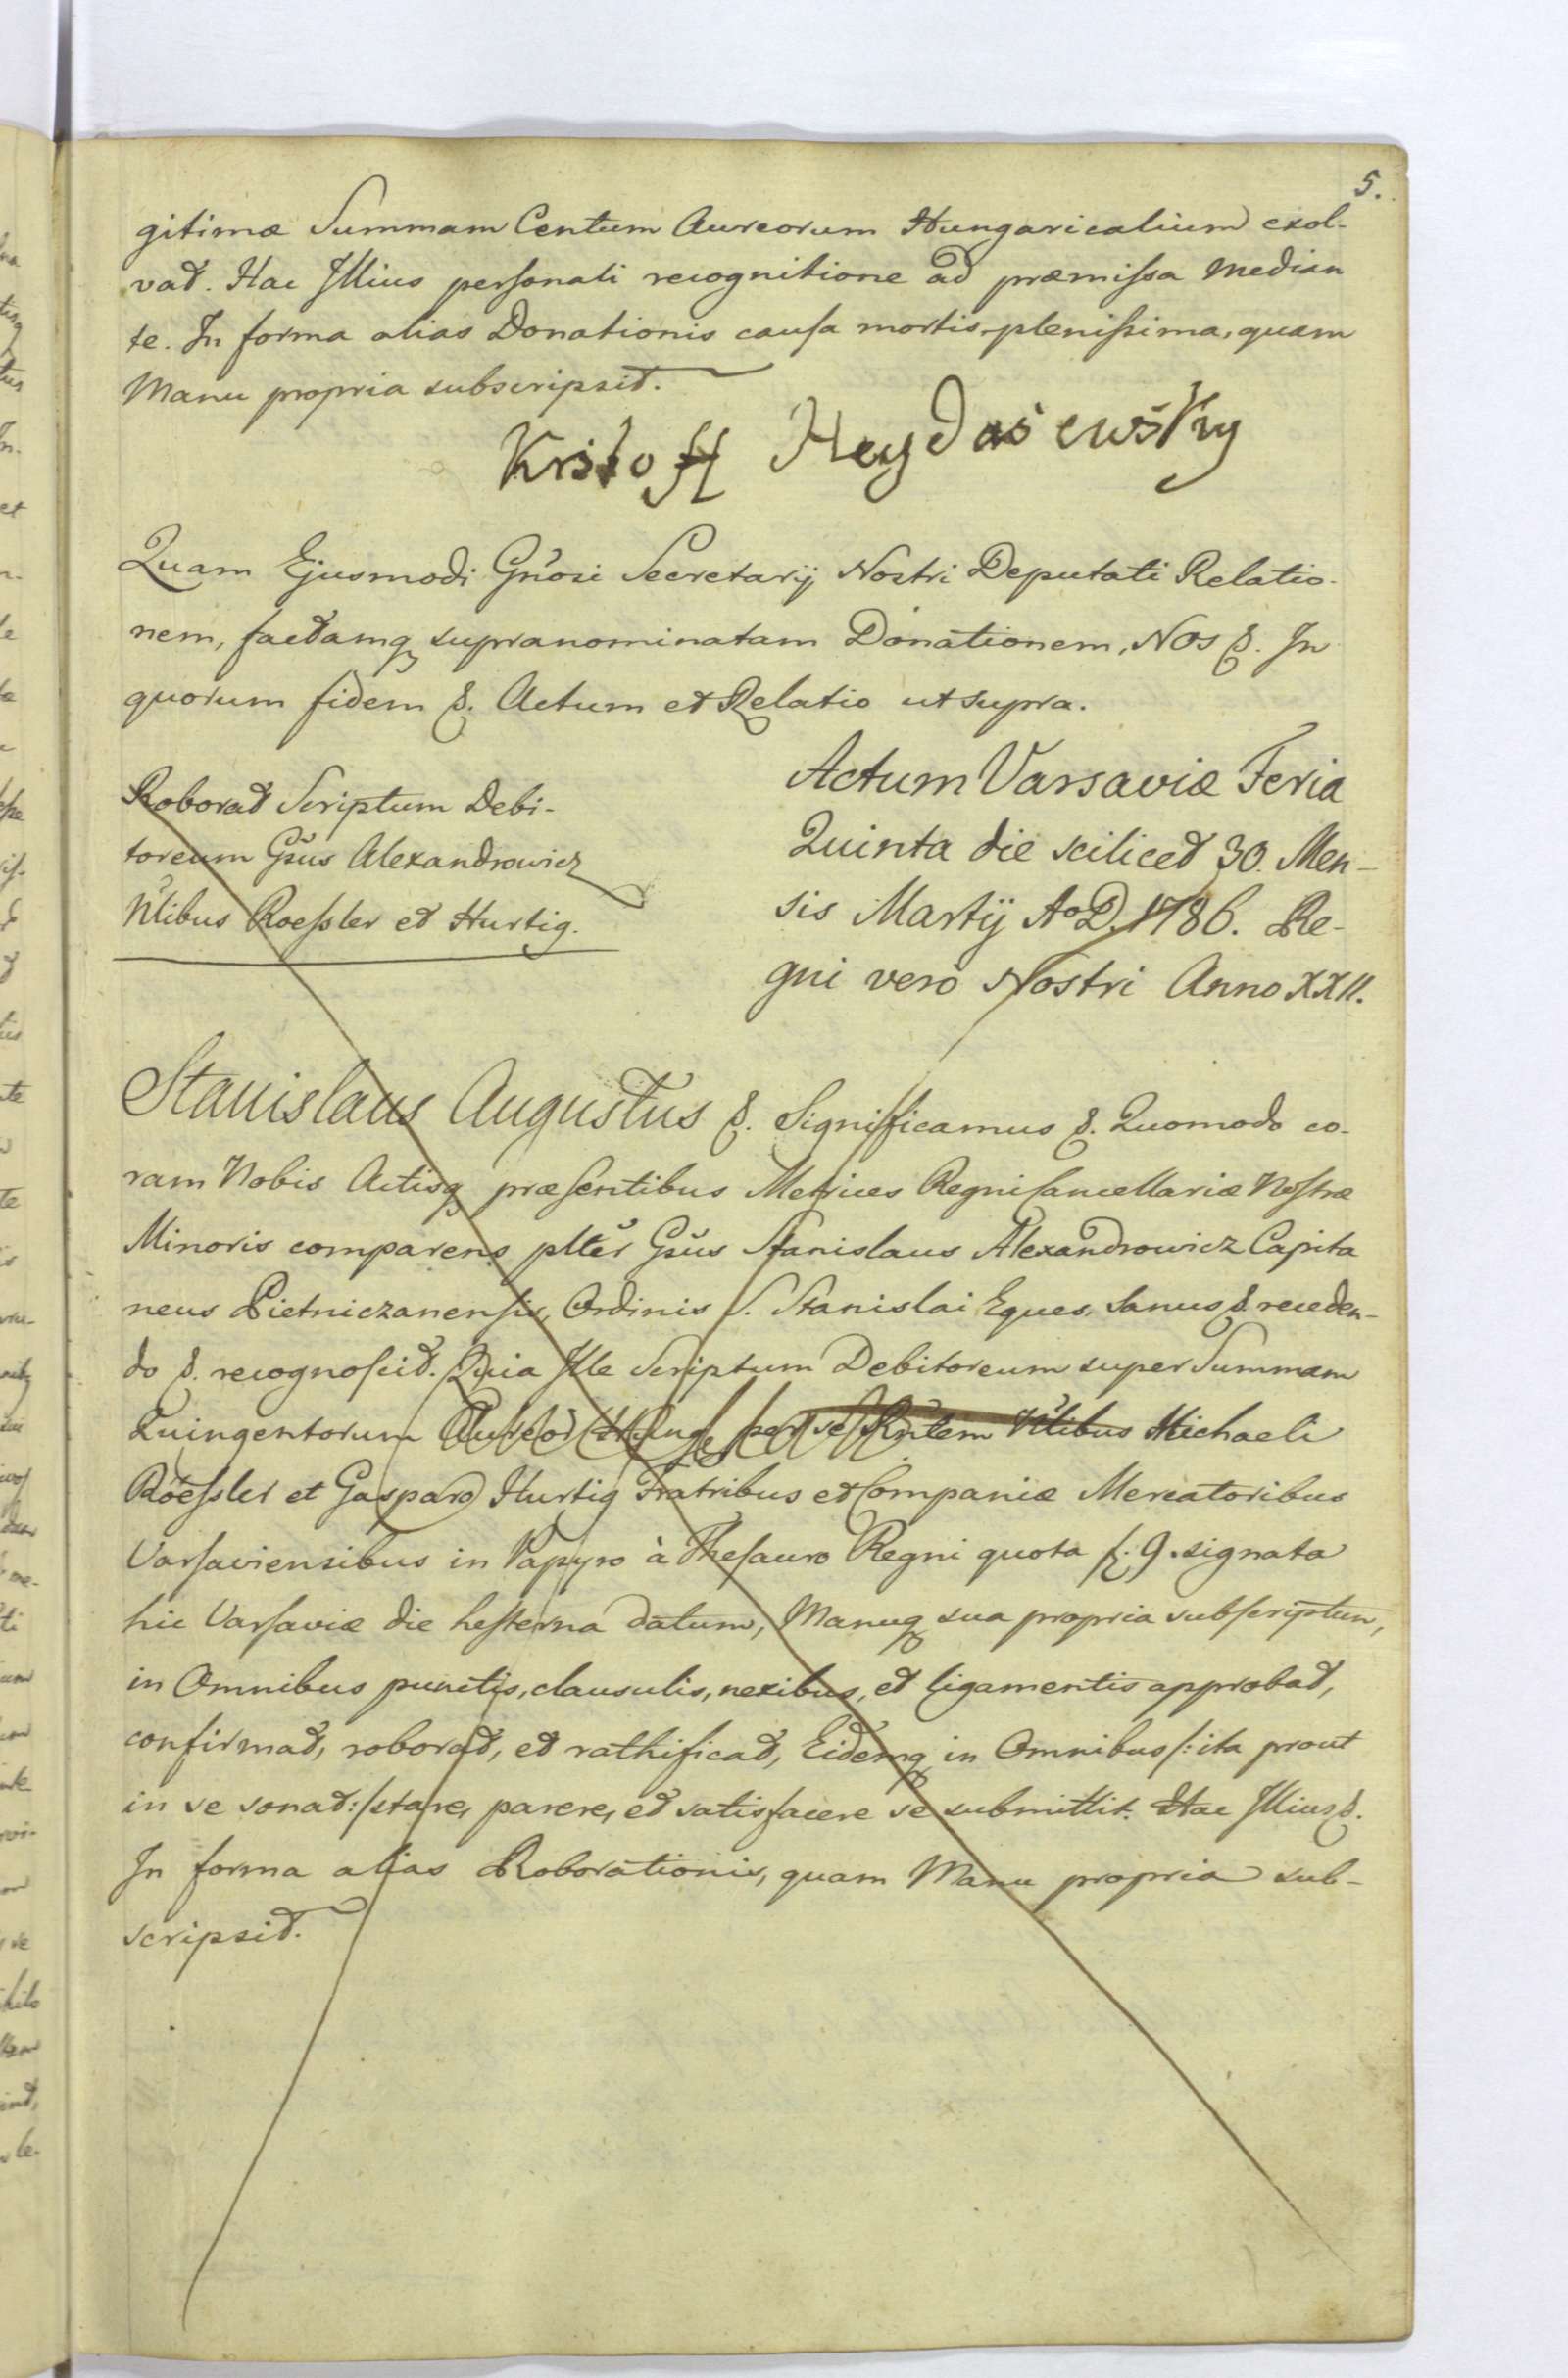 5.
gitimæ Summam Centum Aureorum Hungaricalium exol-
vat. Hac Illius personali recognitione ad præmissa median
te. In forma alias Donationis causa mortis plenissima, quam
Manu propria subscripsit.
Kristoff Heydasewsky
Quam Ejusmodi Gnosi Secretarij Nostri Deputati Relatio-
nem, factamq supranominatam Donationem, Nos &. In
quorum fidem &. Actum et Relatio ut supra.
Roborat Scriptum Debi-
toreum Gsus Alexandrowicz
Nlibus Roessler et Hurtig.
Actum Varsaviæ Feria
Quinta die scilicet 30. Men-
sis Martij Ao D. 1786. Re-
gni vero Nostri Anno XXII.
Stanislaus Augustus &. Significamus &. Quomodo co-
ram Nobis Actisq præsentibus Metrices Regni Cancellariæ Nostræ
Minoris comparens plter Gsus Stanislaus Alexandrowicz Capita
neus Pietniczanensis, Ordinis S. Stanislai Eques, sanus & receden-
do &. recognoscit. Quia Ille Scriptum Debitoreum super Summam
Quingentorum Aureor Hung per se Nlibus Michaeli
Roessler et Gasparo Hurtig Fratribus et Companiæ Mercatoribus
Varsaviensibus in Papyro à Thesauro Regni quota f. 9. signata
hic Varsaviæ die hesterna datum, Manuq sua propria subscriptum,
in Omnibus punctis, clausulis, nexibus, et ligamentis approbat,
confirmat, roborat, et rathificat, Eidemq in Omnibus /: ita prout
in se sonat :/ stare, parere, et satisfacere se submittit. Hac Illius &.
In forma alias Roborationis, quam Manu propria sub-
scripsit.